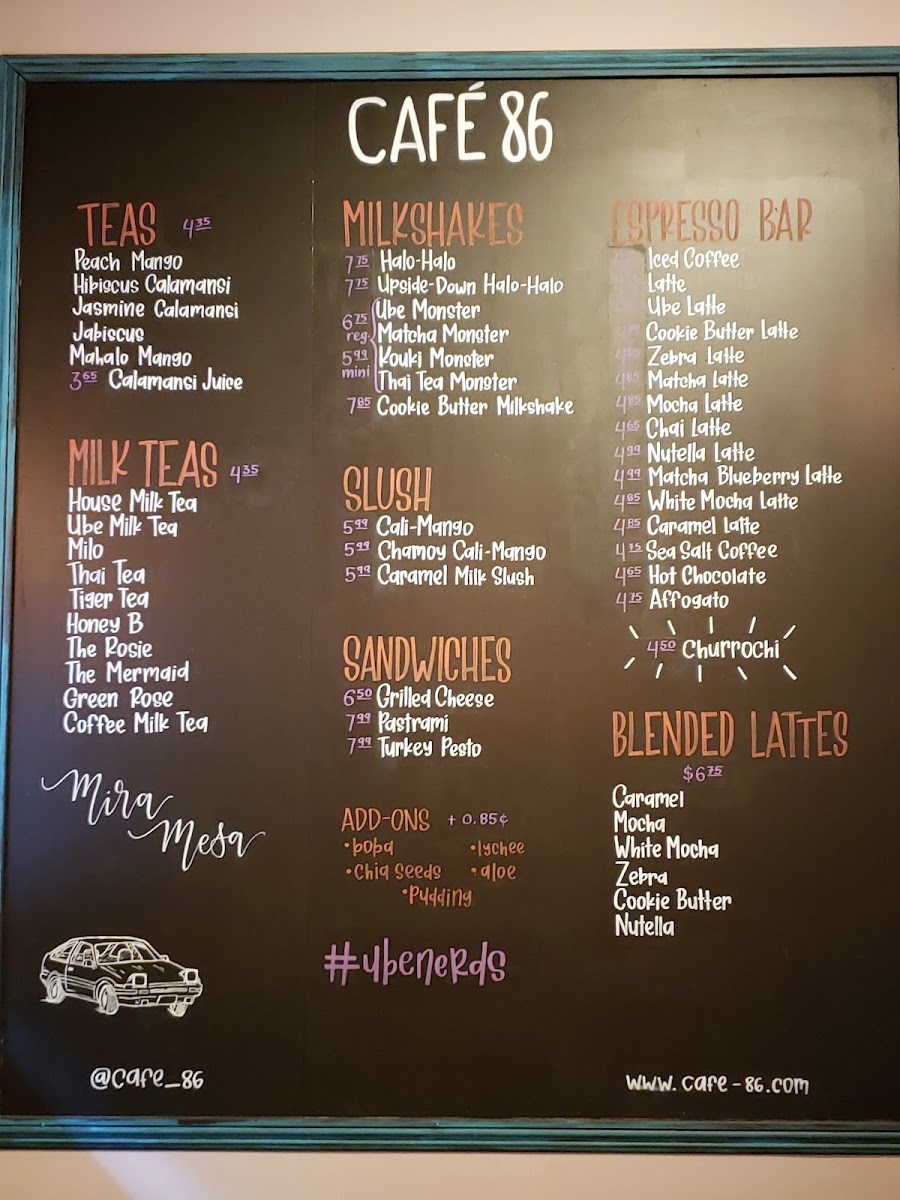 CAFÉ 86
TEAS 4.35
Peach Mango
Hibiscus Calamansi
Jasmine Calamansi
Jabiscus
Mahalo Mango
3.65 Calamansi Juice
MILK TEAS 4.35
House Milk Tea
Ube Milk Tea
Milo
Thai Tea
Tiger Tea
Honey B
The Rosie
The Mermaid
Green Rose
Coffee Milk Tea
Mira
Mesa
@cafe_86
MILKSHAKES
7.75 Halo-Halo
7.75 Upside-Down Halo-Halo
6.75 reg.
5.99 mini
Ube Monster
Matcha Monster
Kouki Monster
Thai Tea Monster
7.85 Cookie Butter Milkshake
SLUSH
5.99 Cali-Mango
5.99 Chamoy Cali-Mango
5.99 Caramel Milk Slush
SANDWICHES
6.50 Grilled Cheese
7.99 Pastrami
7.99 Turkey Pesto
ADD-ONS + 0.85¢
•boba •lychee
•Chia Seeds •aloe
•Pudding
#ubenerds
ESPRESSO BAR
Iced Coffee
Latte
Ube Latte
Cookie Butter Latte
4.85 Zebra Latte
4.85 Matcha Latte
4.85 Mocha Latte
4.65 Chai Latte
4.99 Nutella Latte
4.99 Matcha Blueberry Latte
4.85 White Mocha Latte
4.85 Caramel Latte
4.75 Sea Salt Coffee
4.65 Hot Chocolate
4.75 Affogato
4.50 Churrochi
BLENDED LATTES
$6.75
Caramel
Mocha
White Mocha
Zebra
Cookie Butter
Nutella
www.cafe-86.com